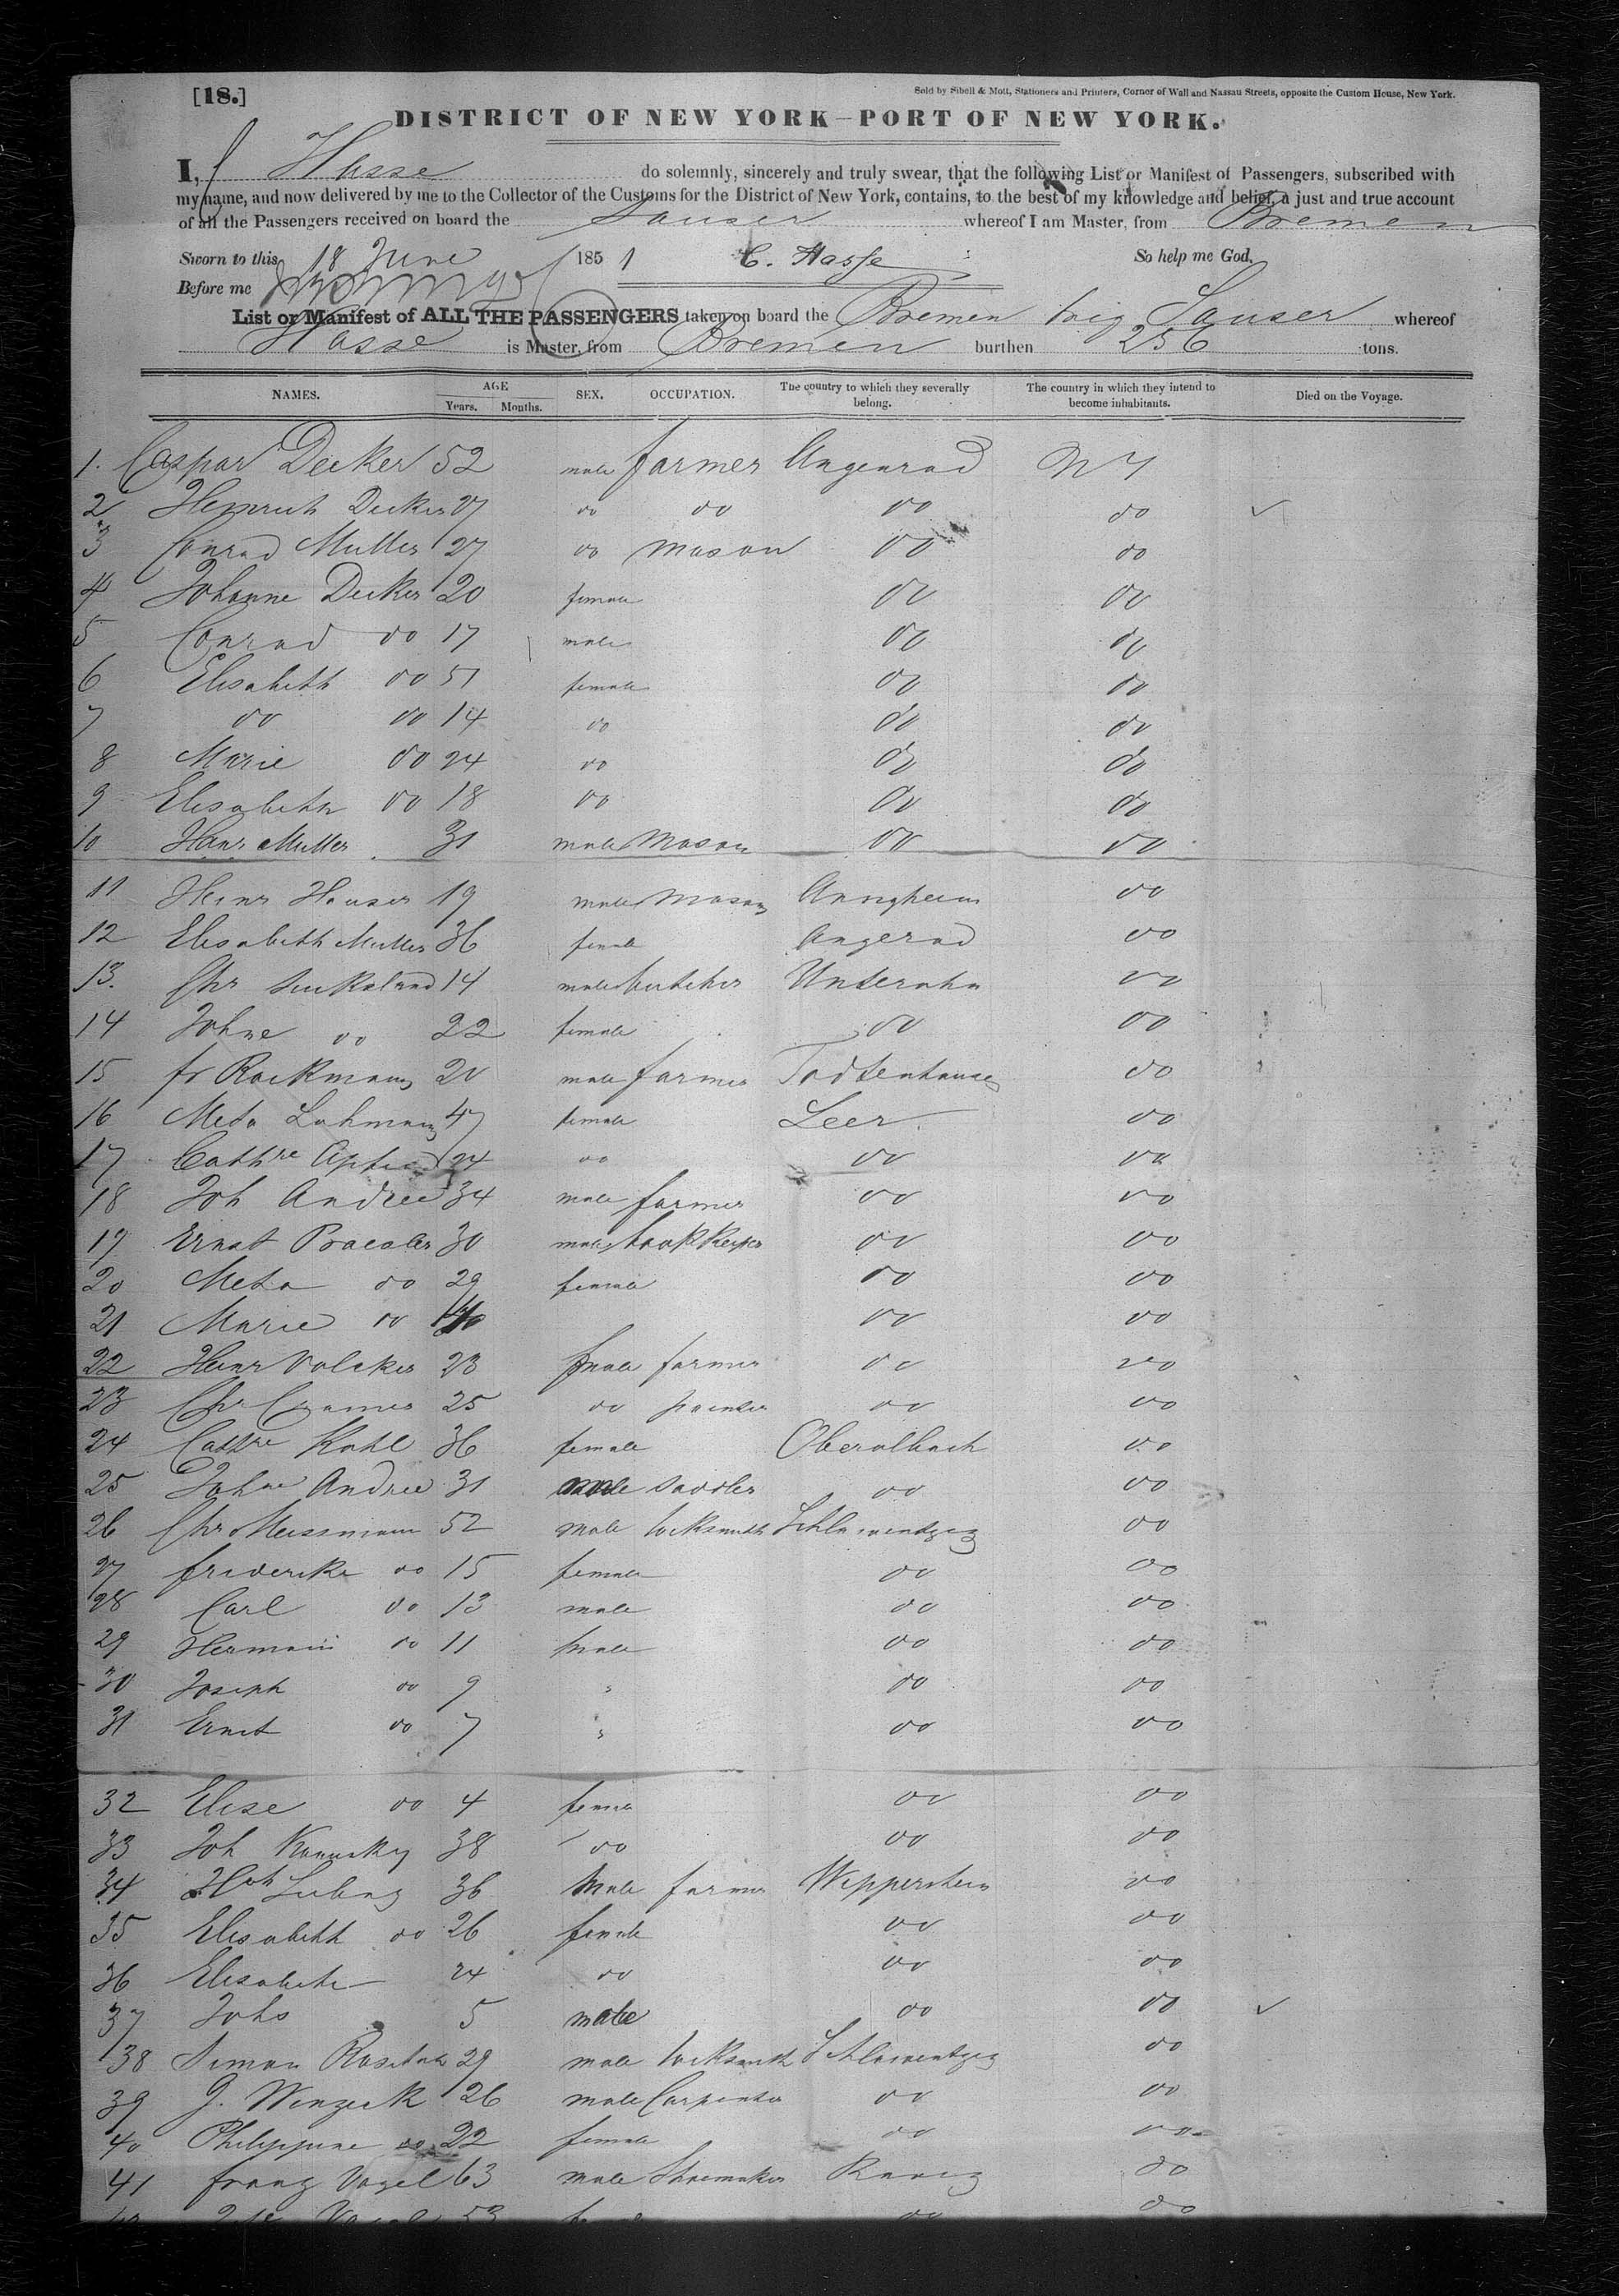 [18.]
Sold by Sibell & Mott, Stationers and Printers, Corner of Wall and Nassau Streets, opposite the Custom House, New York.
DISTRICT OF NEW YORK—PORT OF NEW YORK.
I, Hasse do solemnly, sincerely and truly swear, that the following List or Manifest of Passengers, subscribed with
my name, and now delivered by me to the Collector of the Customs for the District of New York, contains, to the best of my knowledge and belief, a just and true account
of all the Passengers received on board the Sauser whereof I am Master, from Bremen
Sworn to this 18 June 1851 C. Hasse So help me God.
Before me
List or Manifest of ALL THE PASSENGERS taken on board the Bremen brig Sauser whereof
Hasse is Master, from Bremen burthen 256 tons.
NAMES. AGE Years. Months. SEX. OCCUPATION. The country to which they severally belong. The country in which they intend to become inhabitants. Died on the Voyage.
1. Caspar Decker 52 male farmer Angenrod NY
2 Heinrich Decker 27 do do do do
3 Conrad Muller 27 do mason do do
4 Johanne Decker 20 female do do
5 Conrad do 17 male do do
6 Elisabeth do 51 female do do
7 do do 14 do do do
8 Marie do 24 do do do
9 Elisabeth do 18 do do do
10 Hans Muller 31 male mason do do
11 Heinr Hauser 19 male mason do
12 Elisabeth Muller 36 female Angerod do
13. Chr 14 male butcher do
14 Johne do 22 female do do
15 fr Rockmann 20 male farmer Todtenhausen do
16 Meta Lahmann 47 female Leer do
17 Cathne 24 do do do
18 Joh Andree 34 male farmer do do
19 Ernst 30 male bookkeeper do do
20 Meta do 29 female do do
21 Marie do do do
22 Heinr Volcker 23 male farmer do do
23 Chr Cramer 25 do painter do do
24 Cathne Kohl 36 female Oberolbach do
25 Johne Andree 31 male saddler do do
26 Chr Meissmann 52 male locksmith do
27 friderike do 15 female do do
28 Carl do 13 male do do
29 Hermann do 11 male do do
30 Joseph do 9 " do do
31 Ernst do 7 " do do
32 Elise do 4 female do do
33 Joh 38 do do do
34 36 male farmer do
35 Elisabeth do 26 female do do
36 Elisabeth 24 do do do
37 Johs 5 male do do
38 Simon 29 male locksmith do
39 G. Winzeck 26 male Carpenter do do
40 Philippine do 22 female do do
41 franz Vogel 63 male Shoemaker do
Vogel 53 do do